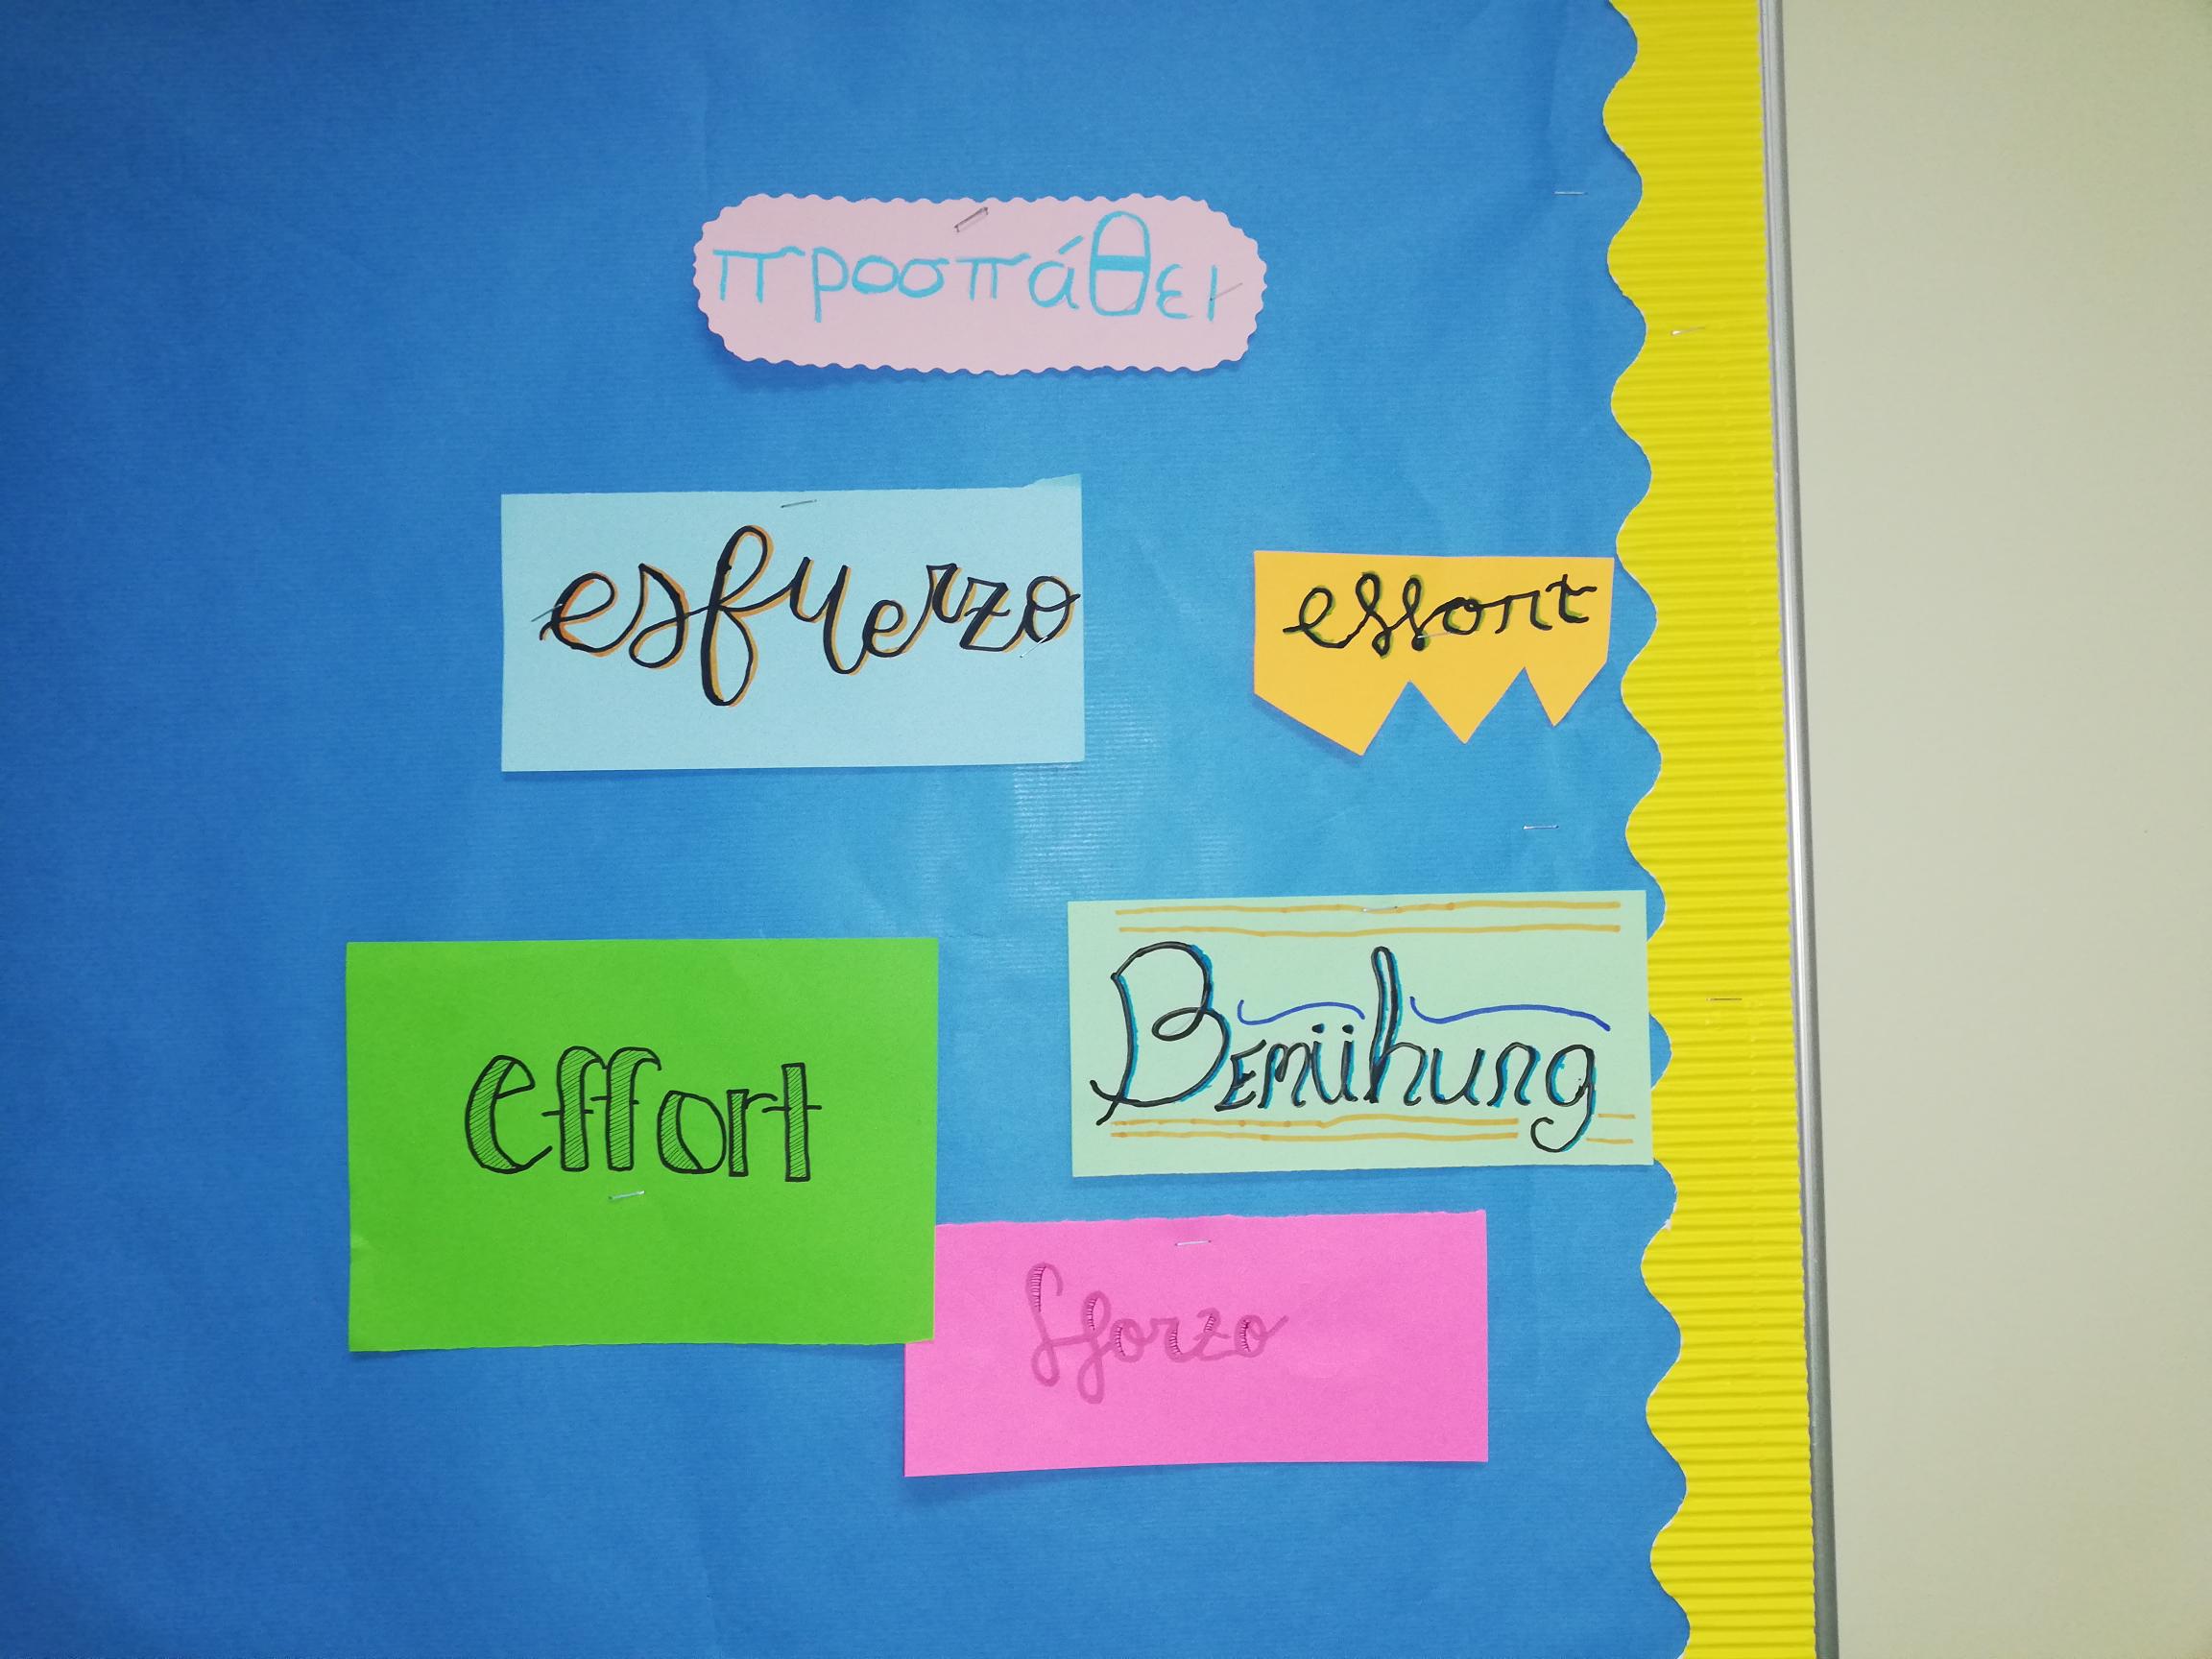 προσπάθει
esfuerzo
effort
Bemühung
effort
Sforzo